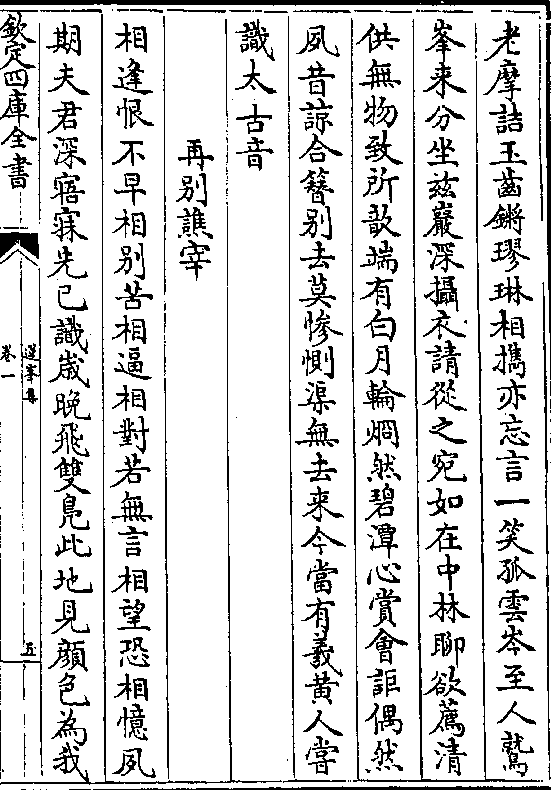 老摩詰玉齒鏘璆琳相攜亦忘言一笑孤雲岑至人鷲
峯来分坐兹巖深攝衣請從之宛如在中林聊欲薦清
供無物致所歆端有白月輪烱然碧潭心賞會詎偶然
夙昔諒合簪别去莫惨惻渠無去来今當有羲黄人嘗
識太古音
再别譙宰
相逢恨不早相别苦相逼相對若無言相望恐相憶夙
期夫君深寤寐先已識歳晩飛雙鳬此地見顔色為我
欽定四庫全書
卷一
五